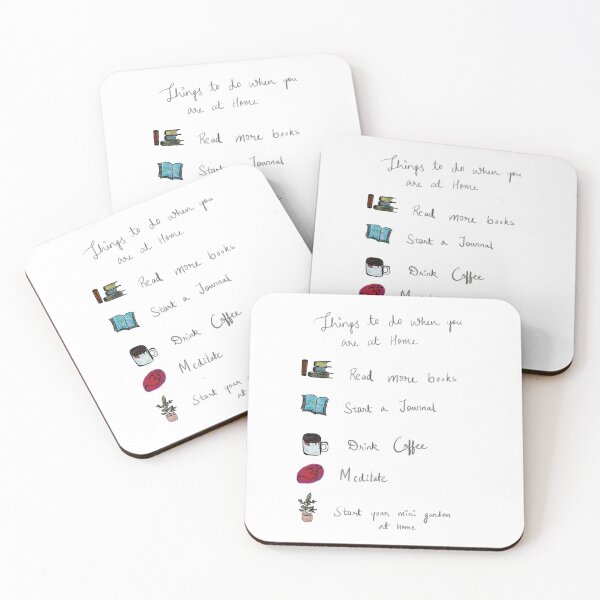 Things to do when you
are at Home
Read more books
Start a Journal
Things to do when you
are at Home
Read more books
Start a Journal
Drink Coffee
Meditate
Things to do when you
are at Home
Read more books
Start a Journal
Drink Coffee
Meditate
Start your
at
Things to do when you
are at Home
Read more books
Start a Journal
Drink Coffee
Meditate
Start your mini garden
at home